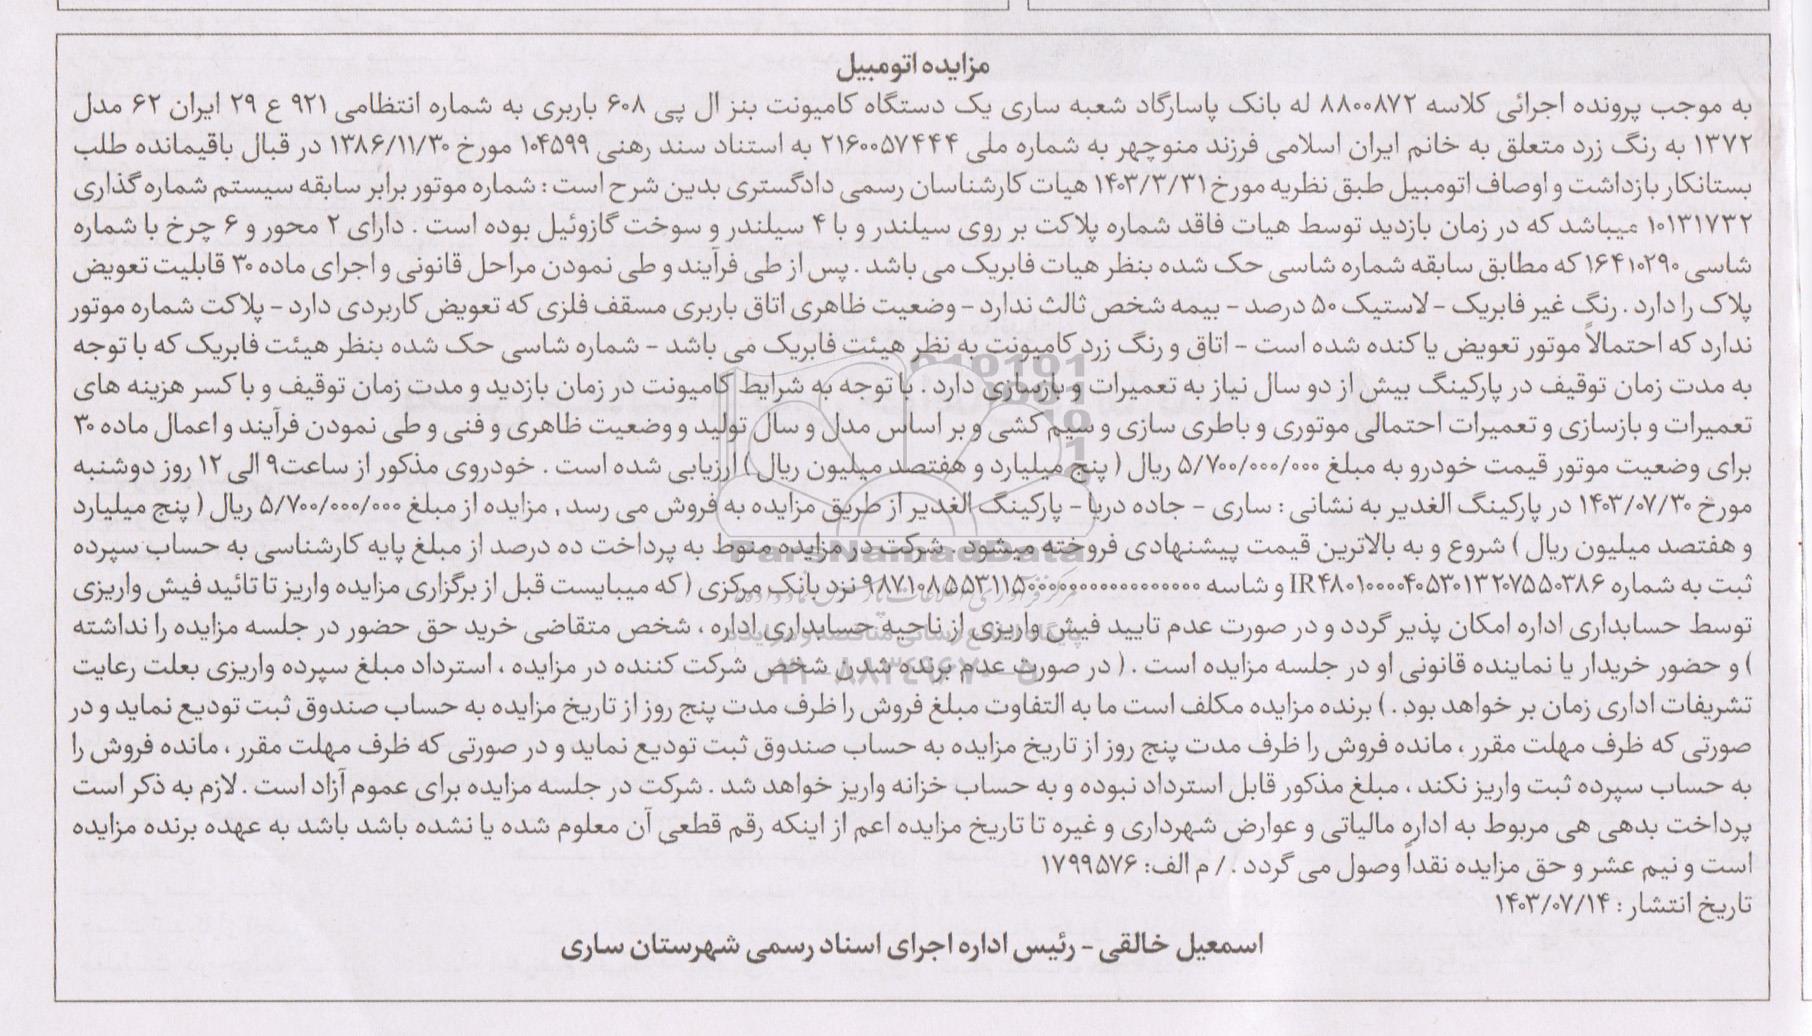 مزایده اتومبیل
به موجب پرونده اجرائی کلاسه ۸۸۰۰۸۷۲ له بانک پاسارگاد شعبه ساری یک دستگاه کامیونت بنز ال پی ۶۰۸ باربری به شماره انتظامی ۹۲۱ ع ۲۹ ایران ۶۲ مدل
۱۳۷۲ به رنگ زرد متعلق به خانم ایران اسلامی فرزند منوچهر به شماره ملی ۲۱۶۰۰۵۷۴۴۴ به استناد سند رهنی ۱۰۴۵۹۹ مورخ ۱۳۸۶/۱۱/۳۰ در قبال باقیمانده طلب
بستانکار بازداشت و اوصاف اتومبیل طبق نظریه مورخ ۱۴۰۳/۳/۳۱ هیات کارشناسان رسمی دادگستری بدین شرح است : شماره موتور برابر سابقه سیستم شماره گذاری
۱۰۱۳۱۷۳۲ میباشد که در زمان بازدید توسط هیات فاقد شماره پلاکت بر روی سیلندر و با ۴ سیلندر و سوخت گازوئیل بوده است . دارای ۲ محور و ۶ چرخ با شماره
شاسی ۱۶۴۱۰۲۹۰ که مطابق سابقه شماره شاسی حک شده بنظر هیات فابریک می باشد . پس از طی فرآیند و طی نمودن مراحل قانونی و اجرای ماده ۳۰ قابلیت تعویض
پلاک را دارد . رنگ غیر فابریک - لاستیک ۵۰ درصد - بیمه شخص ثالث ندارد - وضعیت ظاهری اتاق باربری مسقف فلزی که تعویض کاربردی دارد - پلاکت شماره موتور
ندارد که احتمالاً موتور تعویض یا کنده شده است - اتاق و رنگ زرد کامیونت به نظر هیئت فابریک می باشد - شماره شاسی حک شده بنظر هیئت فابریک که با توجه
به مدت زمان توقیف در پارکینگ بیش از دو سال نیاز به تعمیرات و بازسازی دارد . با توجه به شرایط کامیونت در زمان بازدید و مدت زمان توقیف و با کسر هزینه های
تعمیرات و بازسازی و تعمیرات احتمالی موتوری و باطری سازی و سیم کشی و بر اساس مدل و سال تولید و وضعیت ظاهری و فنی و طی نمودن فرآیند و اعمال ماده ۳۰
برای وضعیت موتور قیمت خودرو به مبلغ ۵/۷۰۰/۰۰۰/۰۰۰ ریال ( پنج میلیارد و هفتصد میلیون ریال ) ارزیابی شده است . خودروی مذکور از ساعت ۹ الی ۱۲ روز دوشنبه
مورخ ۱۴۰۳/۰۷/۳۰ در پارکینگ الغدیر به نشانی : ساری - جاده دریا - پارکینگ الغدیر از طریق مزایده به فروش می رسد , مزایده از مبلغ ۵/۷۰۰/۰۰۰/۰۰۰ ریال ( پنج میلیارد
و هفتصد میلیون ریال ) شروع و به بالاترین قیمت پیشنهادی فروخته میشود . شرکت در مزایده منوط به پرداخت ده درصد از مبلغ پایه کارشناسی به حساب سپرده
ثبت به شماره IR و شناسه نزد بانک مرکزی ( که میبایست قبل از برگزاری مزایده واریز تا تائید فیش واریزی
توسط حسابداری اداره امکان پذیر گردد و در صورت عدم تایید فیش واریزی از ناحیه حسابداری اداره ، شخص متقاضی خرید حق حضور در جلسه مزایده را نداشته
) و حضور خریدار یا نماینده قانونی او در جلسه مزایده است . ( در صورت عدم برنده شدن شخص شرکت کننده در مزایده ، استرداد مبلغ سپرده واریزی بعلت رعایت
تشریفات اداری زمان بر خواهد بود . ) برنده مزایده مکلف است ما به التفاوت مبلغ فروش را ظرف مدت پنج روز از تاریخ مزایده به حساب صندوق ثبت تودیع نماید و در
صورتی که ظرف مهلت مقرر ، مانده فروش را ظرف مدت پنج روز از تاریخ مزایده به حساب صندوق ثبت تودیع نماید و در صورتی که ظرف مهلت مقرر ، مانده فروش را
به حساب سپرده ثبت واریز نکند ، مبلغ مذکور قابل استرداد نبوده و به حساب خزانه واریز خواهد شد . شرکت در جلسه مزایده برای عموم آزاد است . لازم به ذکر است
پرداخت بدهی هی مربوط به اداره مالیاتی و عوارض شهرداری و غیره تا تاریخ مزایده اعم از اینکه رقم قطعی آن معلوم شده یا نشده باشد باشد به عهده برنده مزایده
است و نیم عشر و حق مزایده نقداً وصول می گردد . / م الف: ۱۷۹۹۵۷۶
تاریخ انتشار : ۱۴۰۳/۰۷/۱۴
اسمعیل خالقی - رئیس اداره اجرای اسناد رسمی شهرستان ساری
ParsNamadData